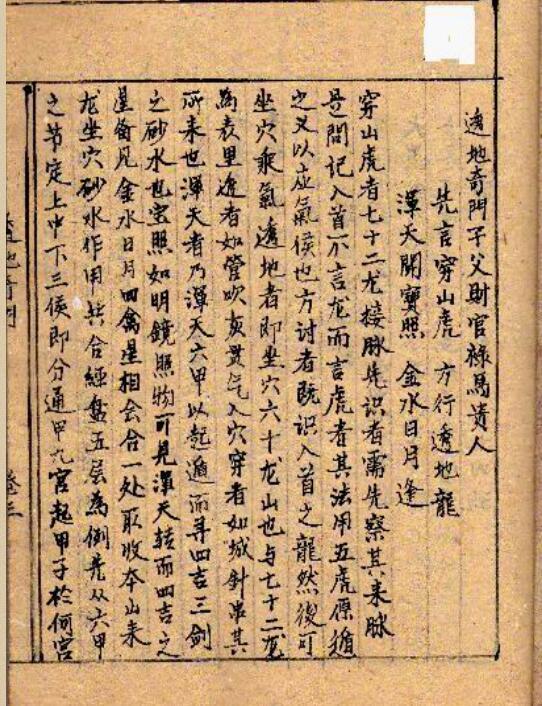 透地奇門子父財官祿馬貴人
先言穿山虎 方行透地龍
渾天開寶照 金水日月逢
穿山虎者七十二龙接脉先识者需先察其来脉
是問记入首不言龙而言虎者其法用五虎原遁
之义以应氣候也方讨者既识入首之龍然後可
坐穴乘氣透地者即坐穴六十龙山也与七十二龙
為表里透者如管吹灰贯气入穴穿者如城針串其
所来也渾天者乃渾天六甲以起遁而寻四吉三剑
之砂水也宝照如明鏡照物可見渾天转而四吉之
星备見金水日月四禽星相会合一处取收本山来
龙坐穴砂水作用共合經盤五层為倒尧从六甲
之节定上中下三候即分通甲九宫起甲子於何宫
透地奇门
卷三